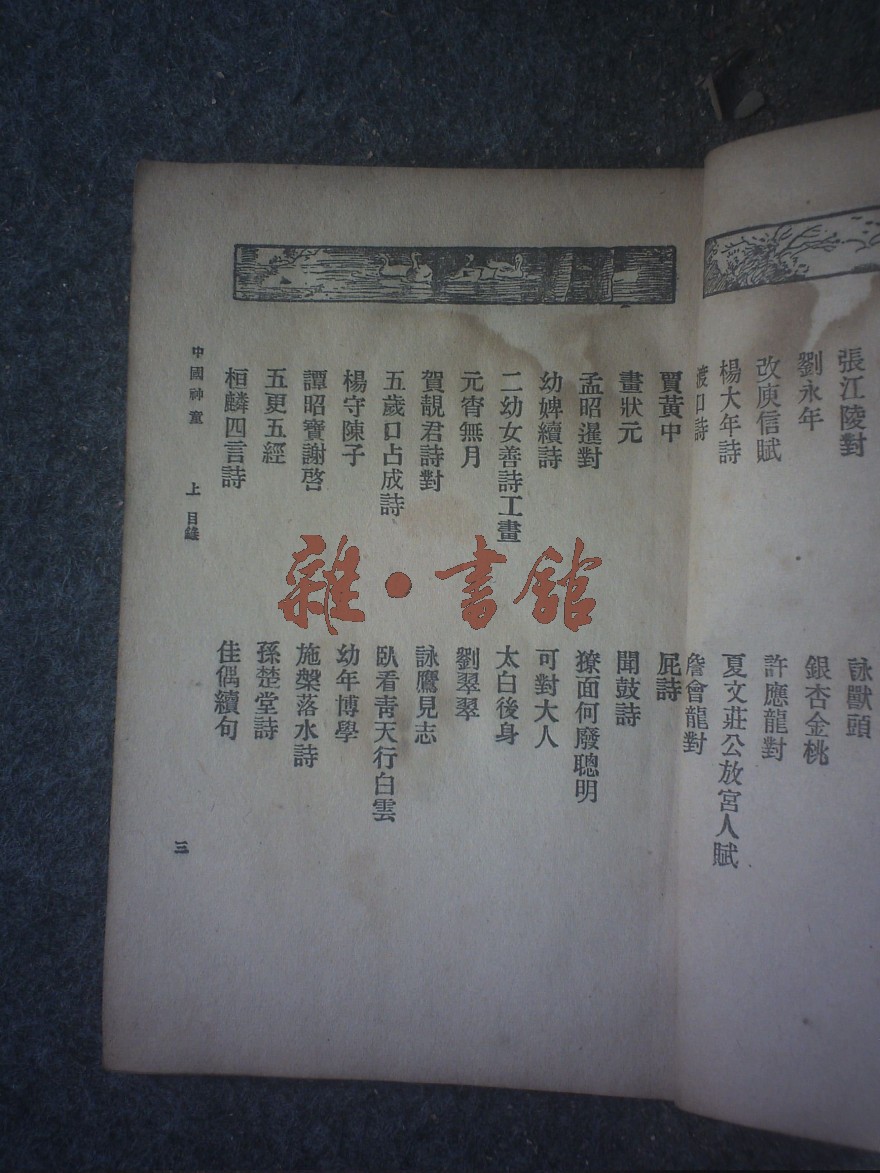 張江陵對
詠獸頭
劉永年
銀杏金桃
改庾信賦
許應龍對
楊大年詩
夏文莊公放宮人賦
渡口詩
詹會龍對
賈黃中
屁詩
畫狀元
聞鼓詩
孟昭暹對
獠面何廢聰明
幼婢續詩
可對大人
二幼女善詩工畫
太白後身
元宵無月
劉翠翠
賀靚君詩對
詠鷹見志
五歲口占成詩
臥看青天行白雲
楊守陳子
幼年博學
譚昭寶謝啓
施槃落水詩
五更五經
孫楚堂詩
桓麟四言詩
佳偶續句
中國神童 上 目錄
三
雜·書館